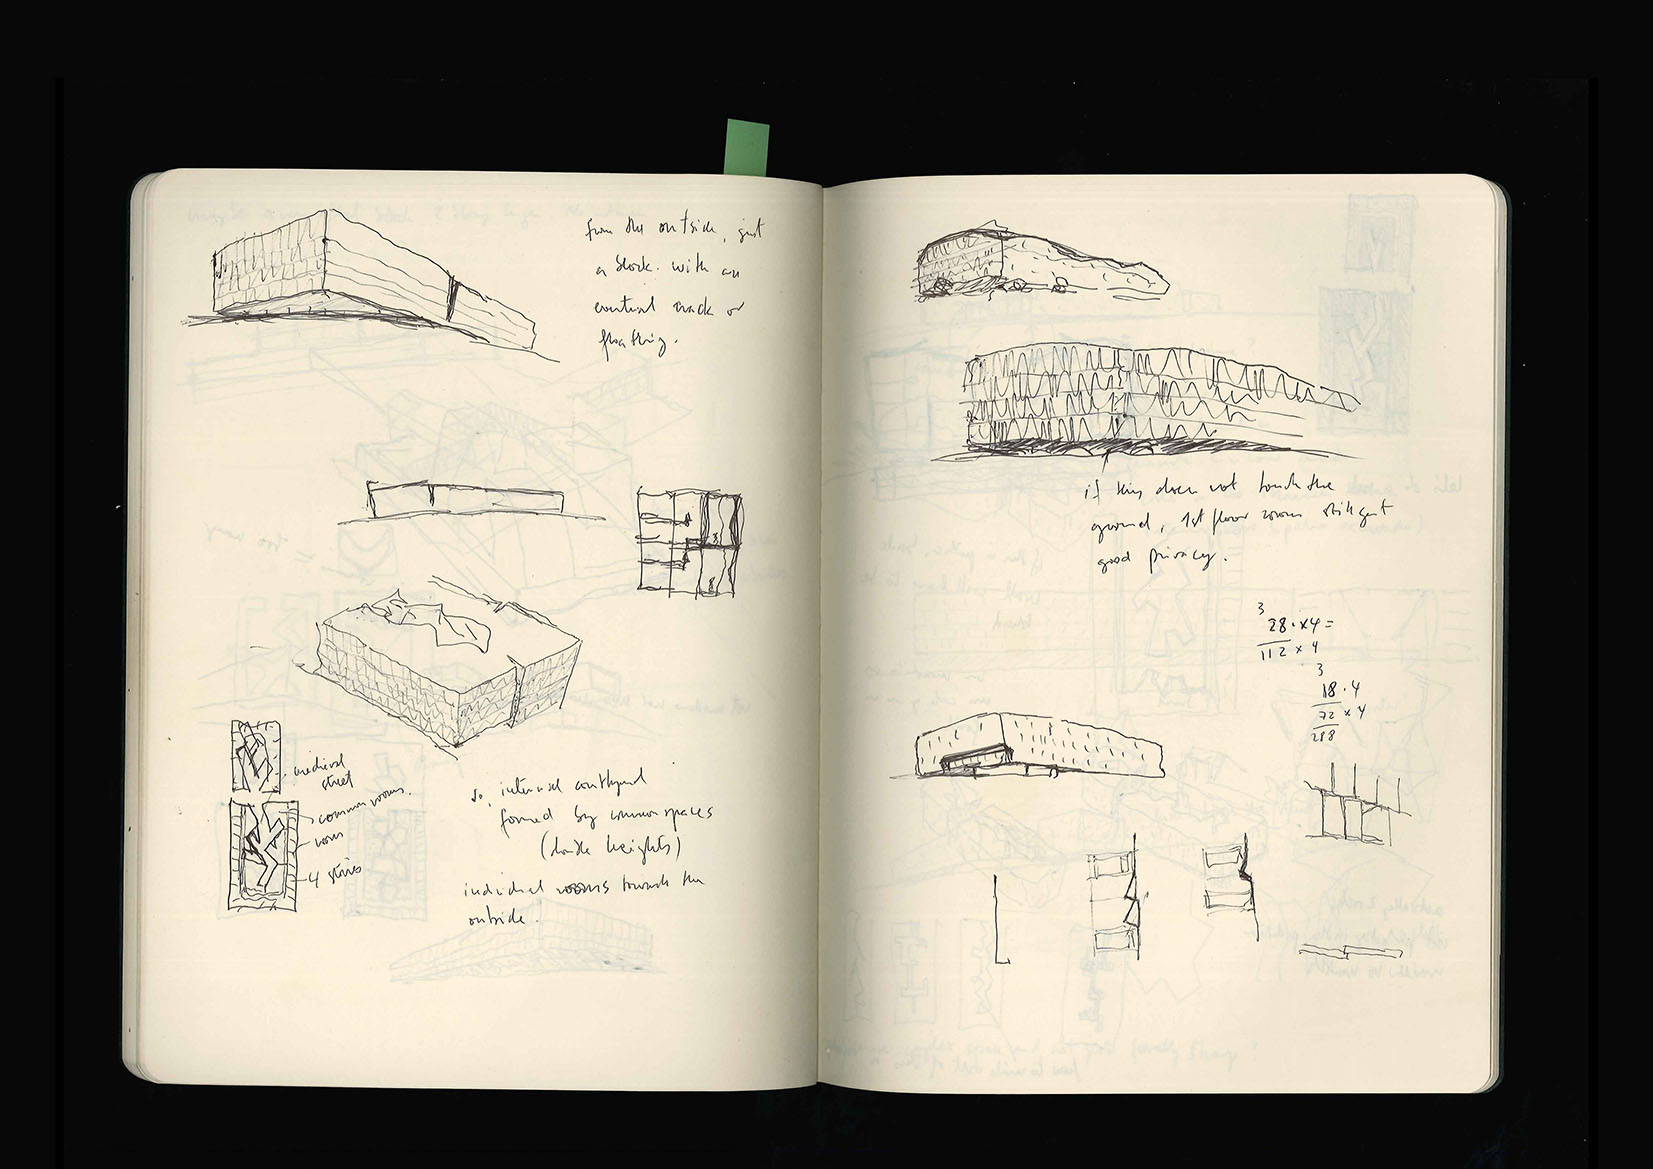 from the outside, just
a block. with an
eventual crack or
floating.
medieval
street
common rooms.
rooms
4 stairs
so, internal courtyard
formed by common spaces
(double heights)
individual rooms towards the
outside.
if this does not touch the
ground, 1st floor rooms still get
good privacy.
3
28 · x4 =
112 x 4
3
18 · 4
72 x 4
288